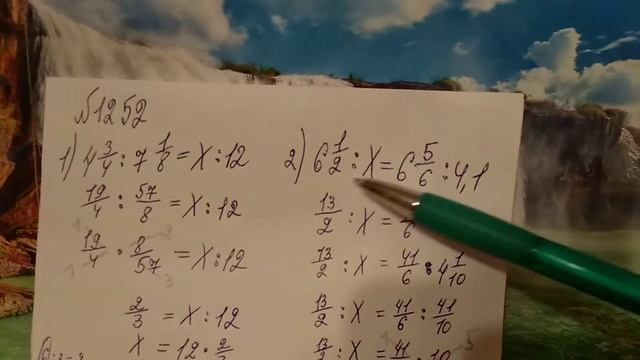 №1252
1) 4 3/4 : 7 1/8 = x : 12
19/4 : 57/8 = x : 12
19/4 · 8/57 = x : 12
2/3 = x : 12
x = 12 · 2/3
2) 6 1/2 : x = 6 5/6 : 4,1
13/2 : x = /6
13/2 : x = 41/6 : 4 1/10
13/2 : x = 41/6 : 41/10
13/2 : x = 41 10